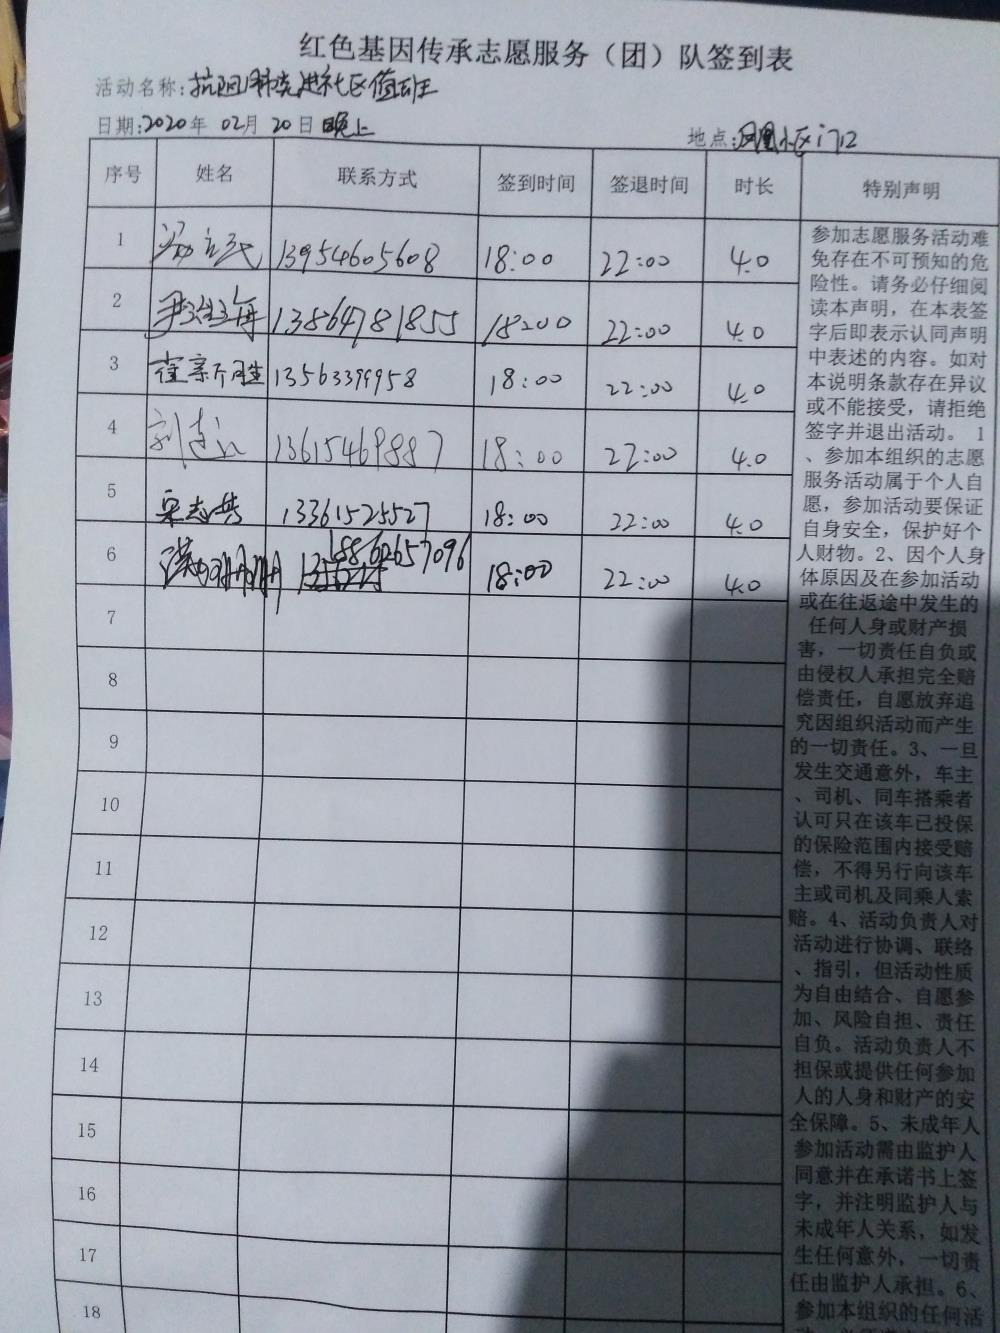 红色基因传承志愿服务（团）队签到表
活动名称：抗阻肺炎进社区值班
日期：2020年 02月 20日晚上
地点：凤凰小区门12
序号 姓名 联系方式 签到时间 签退时间 时长 特别声明
1 13954605608 18:00 22:00 4.0
2 13864781855 18:00 22:00 4.0
3 崔新胜 13563399958 18:00 22:00 4.0
4 13615469887 18:00 22:00 4.0
5 宋志共 13361525527 18:00 22:00 4.0
6 18862657096 18:00 22:00 4.0
7
8
9
10
11
12
13
14
15
16
17
18
参加志愿服务活动难
免存在不可预知的危
险性。请务必仔细阅
读本声明，在本表签
字后即表示认同声明
中表述的内容。如对
本说明条款存在异议
或不能接受，请拒绝
签字并退出活动。 1
、参加本组织的志愿
服务活动属于个人自
愿，参加活动要保证
自身安全，保护好个
人财物。2、因个人身
体原因及在参加活动
或在往返途中发生的
任何人身或财产损
害，一切责任自负或
由侵权人承担完全赔
偿责任，自愿放弃追
究因组织活动而产生
的一切责任。3、一旦
发生交通意外，车主
、司机、同车搭乘者
认可只在该车已投保
的保险范围内接受赔
偿，不得另行向该车
主或司机及同乘人索
赔。4、活动负责人对
活动进行协调、联络
、指引，但活动性质
为自由结合、自愿参
加、风险自担、责任
自负。活动负责人不
担保或提供任何参加
人的人身和财产的安
全保障。5、未成年人
参加活动需由监护人
同意并在承诺书上签
字，并注明监护人与
未成年人关系，如发
生任何意外，一切责
任由监护人承担。6、
参加本组织的任何活